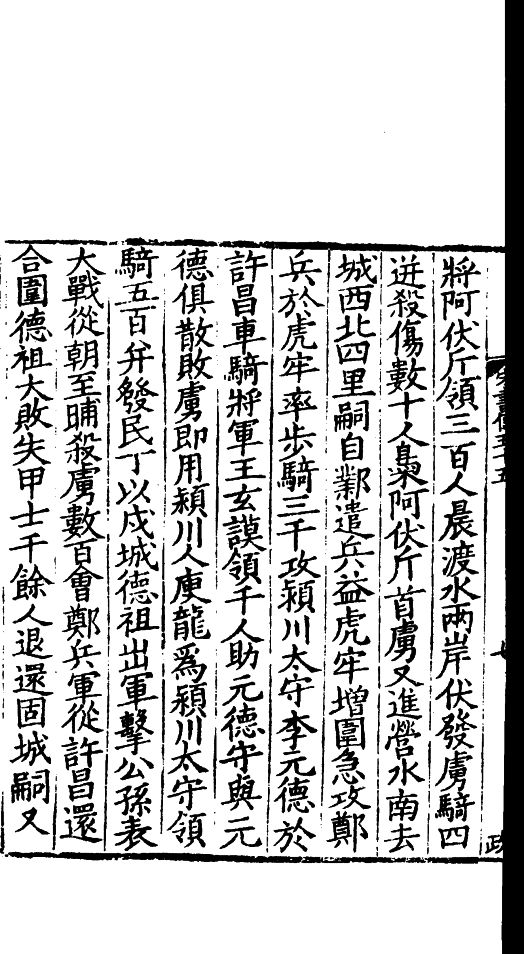 將阿伏斤領三百人晨渡水兩岸伏發虜騎四
迸殺傷數十人梟阿伏斤首虜又進營水南去
城西北四里嗣自鄴遣兵益虎牢增圍急攻鄭
兵於虎牢率步騎三千攻潁川太守李元德於
許昌車騎將軍王玄謨領千人助元德守與元
德俱散敗虜即用潁川人庾龍爲潁川太守領
騎五百并發民丁以戍城德祖出軍擊公孫表
大戰從朝至晡殺虜數百會鄭兵軍從許昌還
合圍德祖大敗失甲士千餘人退還固城嗣又